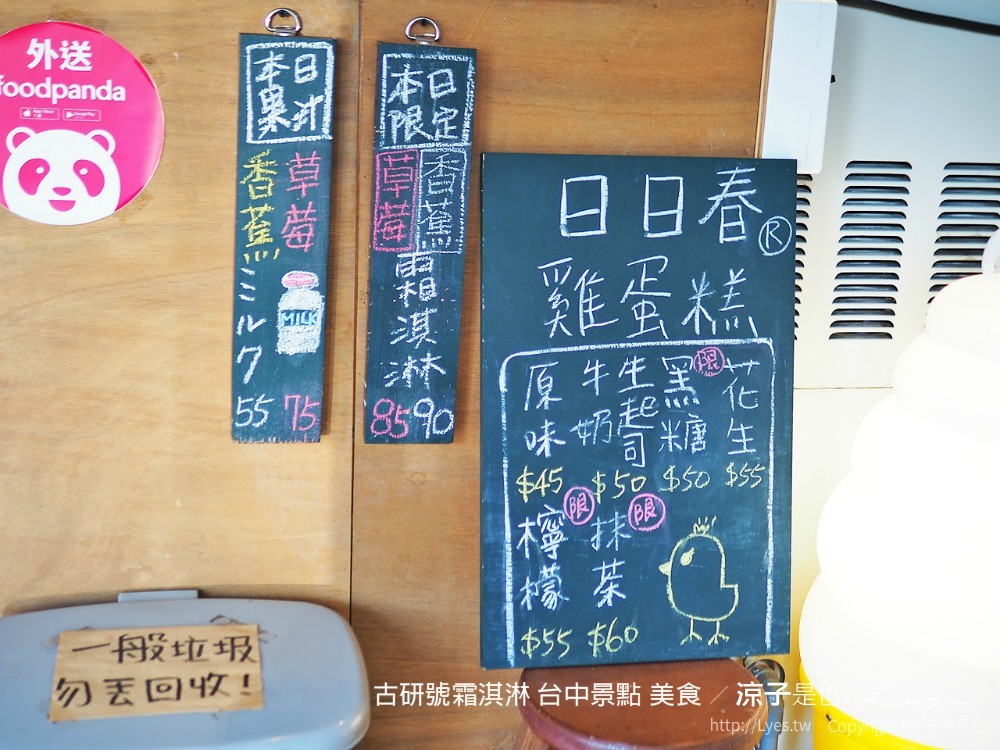 外送
foodpanda
本日
果汁
草莓
香蕉
ミルク
MILK
55
75
本日
限定
香蕉
草莓
霜淇淋
85
90
日日春
®
雞蛋糕
原味
牛奶
生起司
黑糖
限
花生
$45
$50
$50
$55
檸檬
限
抹茶
限
$55
$60
一般垃圾
勿丟回收!
古研號霜淇淋 台中景點 美食 ╱ 涼子是也
http://Lyes.tw Copyright by 涼子是也